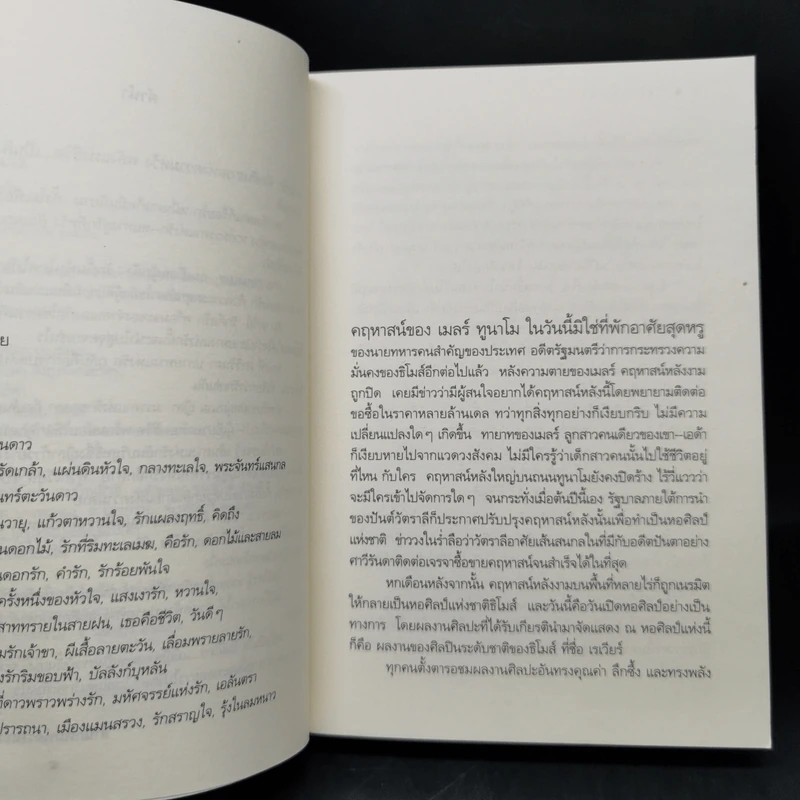 ย
นดาว
รัดเกล้า, แผ่นดินหัวใจ, กลางทะเลใจ, พระจันทร์แสนกล
นทร์ตะวันดาว
นวายุ, แก้วตาหวานใจ, รักแผลงฤทธิ์, คิดถึง
นดอกไม้, รักที่ริมทะเลเมฆ, คือรัก, ดอกไม้และสายลม
นดอกรัก, คำรัก, รักร้อยพันใจ
ครั้งหนึ่งของหัวใจ, แสงเงารัก, หวานใจ,
สาททรายในสายฝน, เธอคือชีวิต, วันดีๆ
มรักเจ้าขา, ผีเสื้อลายตะวัน, เลื่อมพรายลายรัก,
งรักริมขอบฟ้า, บัลลังก์บุหลัน
ที่ดาวพราวพร่างรัก, มหัศจรรย์แห่งรัก, เอลันตรา
ปรารถนา, เมืองแมนสรวง, รักสราญใจ, รุ้งในลมหนาว
คฤหาสน์ของ เมลร์ ทูนาโม ในวันนี้มิใช่ที่พักอาศัยสุดหรู
ของนายทหารคนสำคัญของประเทศ อดีตรัฐมนตรีว่าการกระทรวงความ
มั่นคงของธิโมส์อีกต่อไปแล้ว หลังความตายของเมลร์ คฤหาสน์หลังงาม
ถูกปิด เคยมีข่าวว่ามีผู้สนใจอยากได้คฤหาสน์หลังนี้โดยพยายามติดต่อ
ขอซื้อในราคาหลายล้านเดล ทว่าทุกสิ่งทุกอย่างก็เงียบกริบ ไม่มีความ
เปลี่ยนแปลงใดๆ เกิดขึ้น ทายาทของเมลร์ ลูกสาวคนเดียวของเขา–เอด้า
ก็เงียบหายไปจากแวดวงสังคม ไม่มีใครรู้ว่าเด็กสาวคนนั้นไปใช้ชีวิตอยู่
ที่ไหน กับใคร คฤหาสน์หลังใหญ่บนถนนทูนาโมยังคงปิดร้าง ไร้วี่แววว่า
จะมีใครเข้าไปจัดการใดๆ จนกระทั่งเมื่อต้นปีนี้เอง รัฐบาลภายใต้การนำ
ของปันต์วัตราลีก็ประกาศปรับปรุงคฤหาสน์หลังนั้นเพื่อทำเป็นหอศิลป์
แห่งชาติ ข่าววงในร่ำลือว่าวัตราลีอาศัยเส้นสนกลในที่มีกับอดีตปันตาอย่าง
ศาวีรันดาติดต่อเจรจาซื้อขายคฤหาสน์จนสำเร็จได้ในที่สุด
หกเดือนหลังจากนั้น คฤหาสน์หลังงามบนพื้นที่หลายไร่ก็ถูกเนรมิต
ให้กลายเป็นหอศิลป์แห่งชาติธิโมส์ และวันนี้คือวันเปิดหอศิลป์อย่างเป็น
ทางการ โดยผลงานศิลปะที่ได้รับเกียรตินำมาจัดแสดง ณ หอศิลป์แห่งนี้
ก็คือ ผลงานของศิลปินระดับชาติของธิโมส์ ที่ชื่อ เรเวียร์
ทุกคนตั้งตารอชมผลงานศิลปะอันทรงคุณค่า ลึกซึ้ง และทรงพลัง